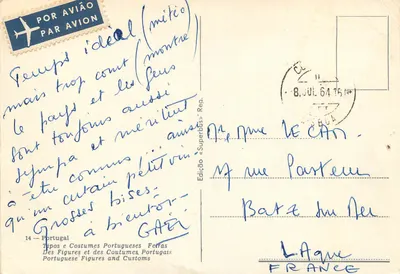 POR AVIÃO
PAR AVION
Temps idéal (météo)
mais trop court (montre)
le pays et les gens
sont toujours aussi
sympa et méritent
à être connus ... ainsi
qu'un certain petit vin.
Grosses bises.
à bientôt.
GAËL
14 — Portugal
Tipos e Costumes Portugueses Feiras
Des Figures et des Coutumes Portugais
Portuguese Figures and Customs
Edição «Superbus» Rep.
8. JUL 64
Mr, Mme LE
17 rue Pasteur
Batz sur Mer
FRANCE